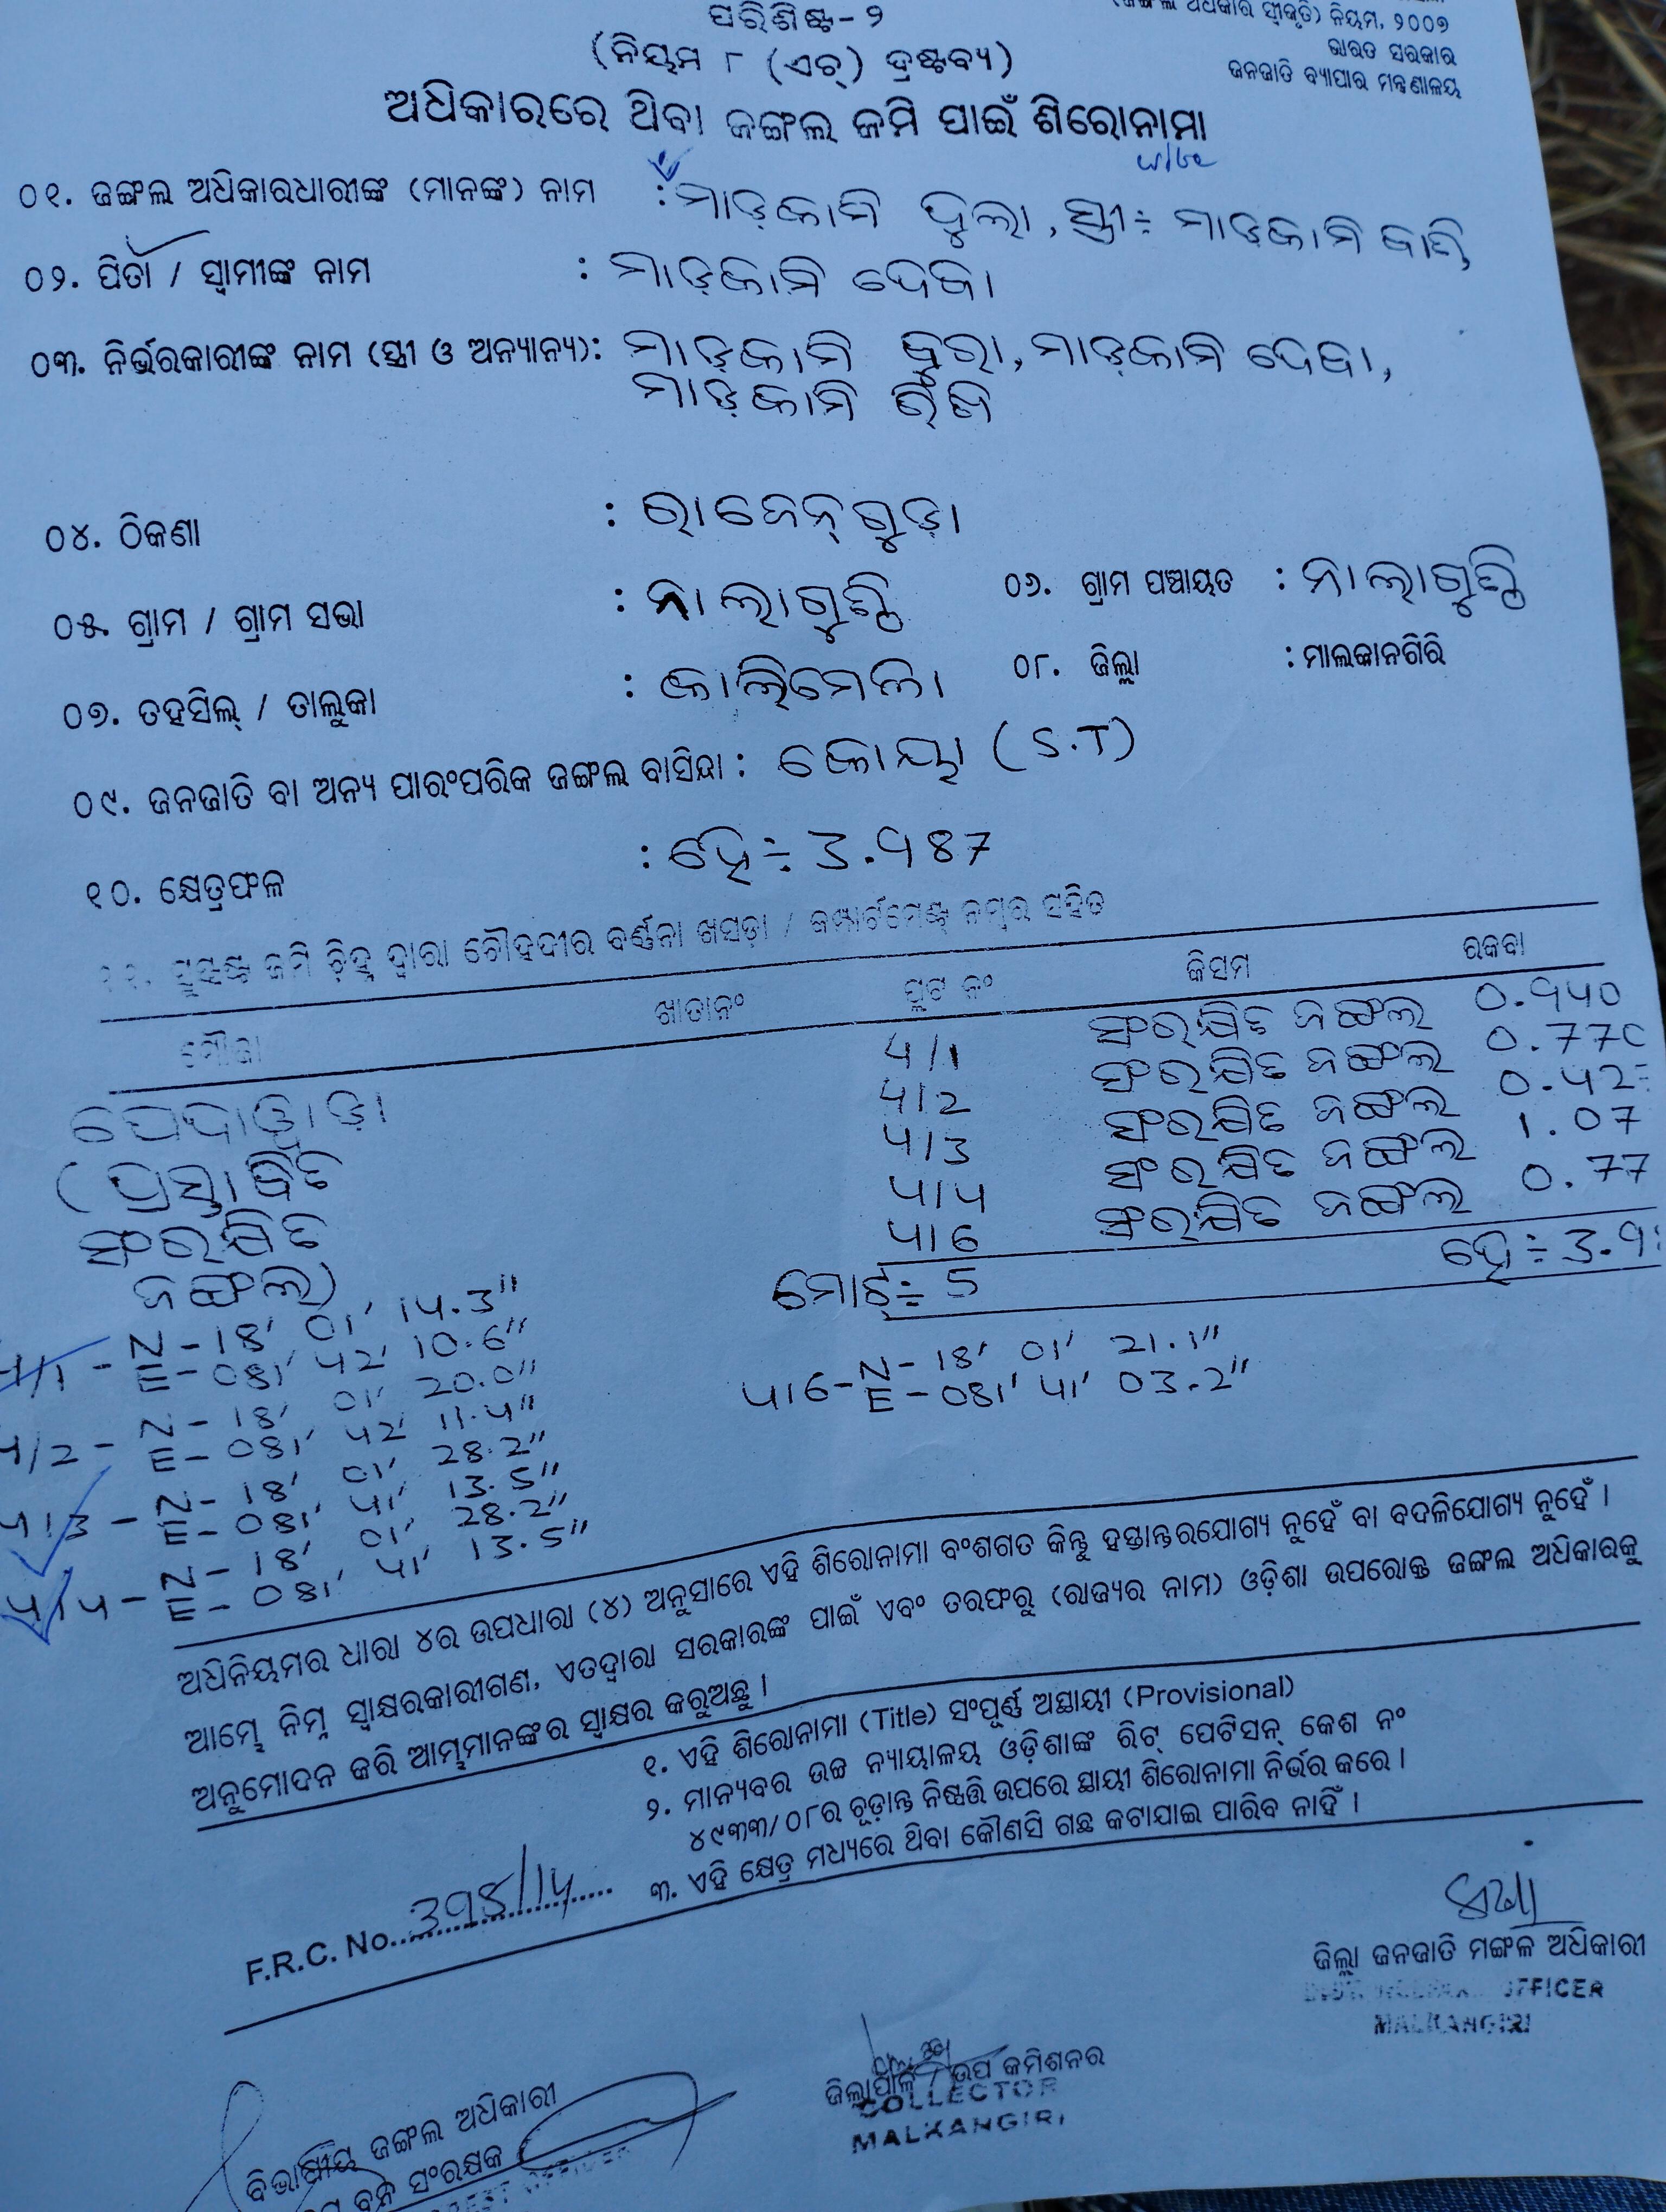 ପରିଶିଷ୍ଟ - ୨
(ଜଙ୍ଗଲ ଅଧିକାର ସ୍ୱୀକୃତି) ନିୟମ, ୨୦୦୭
(ନିୟମ ୮ (ଏଚ୍) ଦ୍ରଷ୍ଟବ୍ୟ)
ଭାରତ ସରକାର
ଜନଜାତି ବ୍ୟାପାର ମନ୍ତ୍ରଣାଳୟ
ଅଧିକାରରେ ଥିବା ଜଙ୍ଗଲ ଜମି ପାଇଁ ଶିରୋନାମା
wife
୦୧. ଜଙ୍ଗଲ ଅଧିକାରଧାରୀଙ୍କ (ମାନଙ୍କ) ନାମ : ମାଡ଼କାମି ଦୁଲା, ସ୍ତ୍ରୀ÷ ମାଡ଼କାମି
୦୨. ପିତା / ସ୍ୱାମୀଙ୍କ ନାମ : ମାଡ଼କାମି ଦେବା
୦୩. ନିର୍ଭରକାରୀଙ୍କ ନାମ (ସ୍ତ୍ରୀ ଓ ଅନ୍ୟାନ୍ୟ): ମାଡ଼କାମି, ମାଡ଼କାମି ଦେବା,
ମାଡ଼କାମି
୦୪. ଠିକଣା : ରାଜେନ୍‌ଗୁଡ଼ା
୦୫. ଗ୍ରାମ / ଗ୍ରାମ ସଭା : ନାଲାଗୁଣ୍ଠି ୦୬. ଗ୍ରାମ ପଞ୍ଚାୟତ : ନାଲାଗୁଣ୍ଠି
୦୭. ତହସିଲ୍ / ତାଲୁକା : କାଲିମେଲା ୦୮. ଜିଲ୍ଲା : ମାଲକାନଗିରି
୦୯. ଜନଜାତି ବା ଅନ୍ୟ ପାରଂପରିକ ଜଙ୍ଗଲ ବାସିନ୍ଦା : କୋୟା (S.T)
୧୦. କ୍ଷେତ୍ରଫଳ : ହେ÷ 3.987
୧୧. ସୁସ୍ପଷ୍ଟ ଜମି ଚିହ୍ନ ଦ୍ୱାରା ଚୌହଦୀର ବର୍ଣ୍ଣନା ଖସଡ଼ା / କମ୍ପାର୍ଟମେଣ୍ଟ ନମ୍ବର ସହିତ
ମୌଜା ଖାତାନଂ ପ୍ଲଟ ନଂ କିସମ ରକବା
4/1 ସଂରକ୍ଷିତ ଜଙ୍ଗଲ 0.940
4/2 ସଂରକ୍ଷିତ ଜଙ୍ଗଲ 0.77
4/3 ସଂରକ୍ଷିତ ଜଙ୍ଗଲ 0.42
4/4 ସଂରକ୍ଷିତ ଜଙ୍ଗଲ 1.07
4/6 ସଂରକ୍ଷିତ ଜଙ୍ଗଲ 0.77
ପେଦାୱାଡ଼ା
(ପ୍ରସ୍ତାବିତ
ସଂରକ୍ଷିତ
ଜଙ୍ଗଲ)
ମୋଟ୍÷ 5 ହେ÷ 3.9
4/1 - N - 18' 01' 14.3"
E - 081' 42' 10.6"
4/2 - N - 18' 01' 20.0"
E - 081' 42' 11.4"
4/3 - N - 18' 01' 28.2"
E - 081' 41' 13.5"
4/4 - N - 18' 01' 28.2"
E - 081' 41' 13.5"
4/6 - N - 18' 01' 21.1"
E - 081' 41' 03.2"
ଅଧିନିୟମର ଧାରା ୪ର ଉପଧାରା (୪) ଅନୁସାରେ ଏହି ଶିରୋନାମା ବଂଶଗତ କିନ୍ତୁ ହସ୍ତାନ୍ତରଯୋଗ୍ୟ ନୁହେଁ ବା ବଦଳିଯୋଗ୍ୟ ନୁହେଁ ।
ଆମ୍ଭେ ନିମ୍ନ ସ୍ୱାକ୍ଷରକାରୀଗଣ, ଏତଦ୍ୱାରା ସରକାରଙ୍କ ପାଇଁ ଏବଂ ତରଫରୁ (ରାଜ୍ୟର ନାମ) ଓଡ଼ିଶା ଉପରୋକ୍ତ ଜଙ୍ଗଲ ଅଧିକାରକୁ
ଅନୁମୋଦନ କରି ଆମ୍ଭମାନଙ୍କର ସ୍ୱାକ୍ଷର କରୁଅଛୁ ।
୧. ଏହି ଶିରୋନାମା (Title) ସଂପୂର୍ଣ୍ଣ ଅସ୍ଥାୟୀ (Provisional)
୨. ମାନ୍ୟବର ଉଚ୍ଚ ନ୍ୟାୟାଳୟ ଓଡ଼ିଶାଙ୍କ ରିଟ୍ ପେଟିସନ୍ କେଶ ନଂ
୪୯୩୩/୦୮ର ଚୂଡ଼ାନ୍ତ ନିଷ୍ପତ୍ତି ଉପରେ ସ୍ଥାୟୀ ଶିରୋନାମା ନିର୍ଭର କରେ ।
୩. ଏହି କ୍ଷେତ୍ର ମଧ୍ୟରେ ଥିବା କୌଣସି ଗଛ କଟାଯାଇ ପାରିବ ନାହିଁ ।
F.R.C. No.
ଜିଲ୍ଲା ଜନଜାତି ମଙ୍ଗଳ ଅଧିକାରୀ
OFFICER
MALKANGIRI
ଜିଲ୍ଲାପାଳ / ଉପ କମିଶନର
COLLECTOR
MALKANGIRI
ବିଭାଗୀୟ ଜଙ୍ଗଲ ଅଧିକାରୀ
ବନ ସଂରକ୍ଷକ